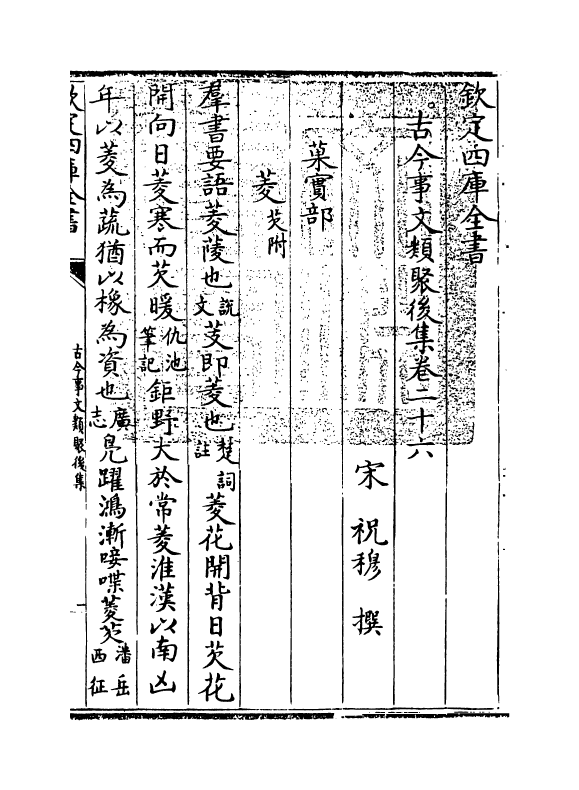 欽定四庫全書
古今事文類聚後集卷二十六
宋 祝穆 撰
菓實部
菱芡附
羣書要語菱蔆也説文芰即菱也楚詞註菱花開背日芡花
開向日菱寒而芡暖仇池筆記鉅野大於常菱淮漢以南凶
年以菱為蔬猶以橡為資也廣志鳬躍鴻漸唼喋菱芡潘岳西征
欽定四庫全書
古今事文類聚後集
一